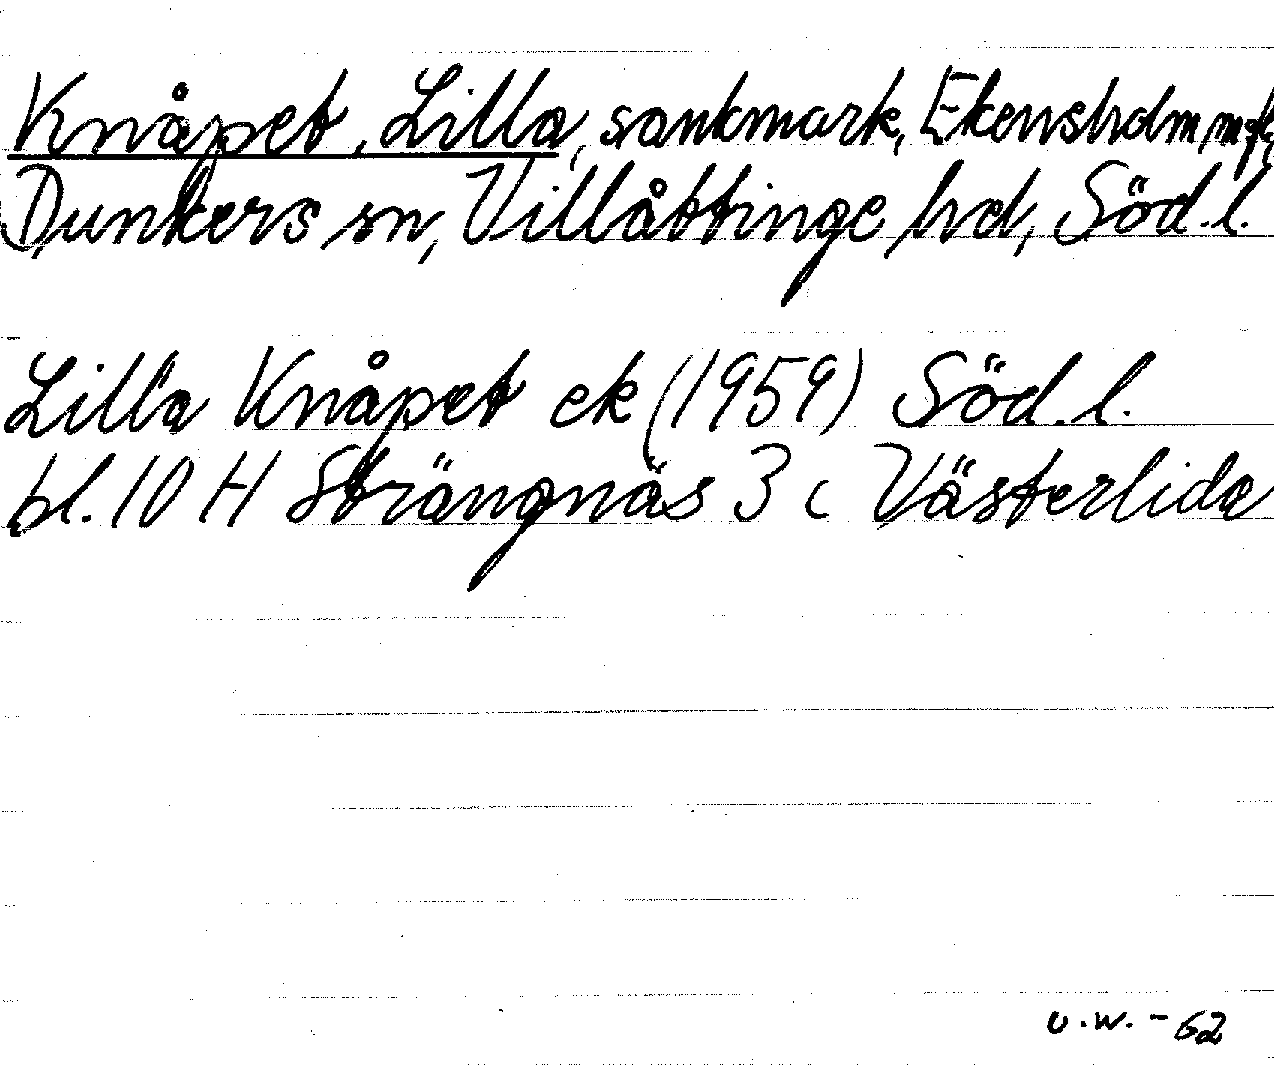 Knåpet, Lilla, sankmark, Ekensholm m.fl.,
Dunkers sn, Villåttinge hd, Söd.l.
Lilla Knåpet ek (1959) Söd.l.
bl. 10 H Strängnäs 3 c Västerlida
U.W. - 62